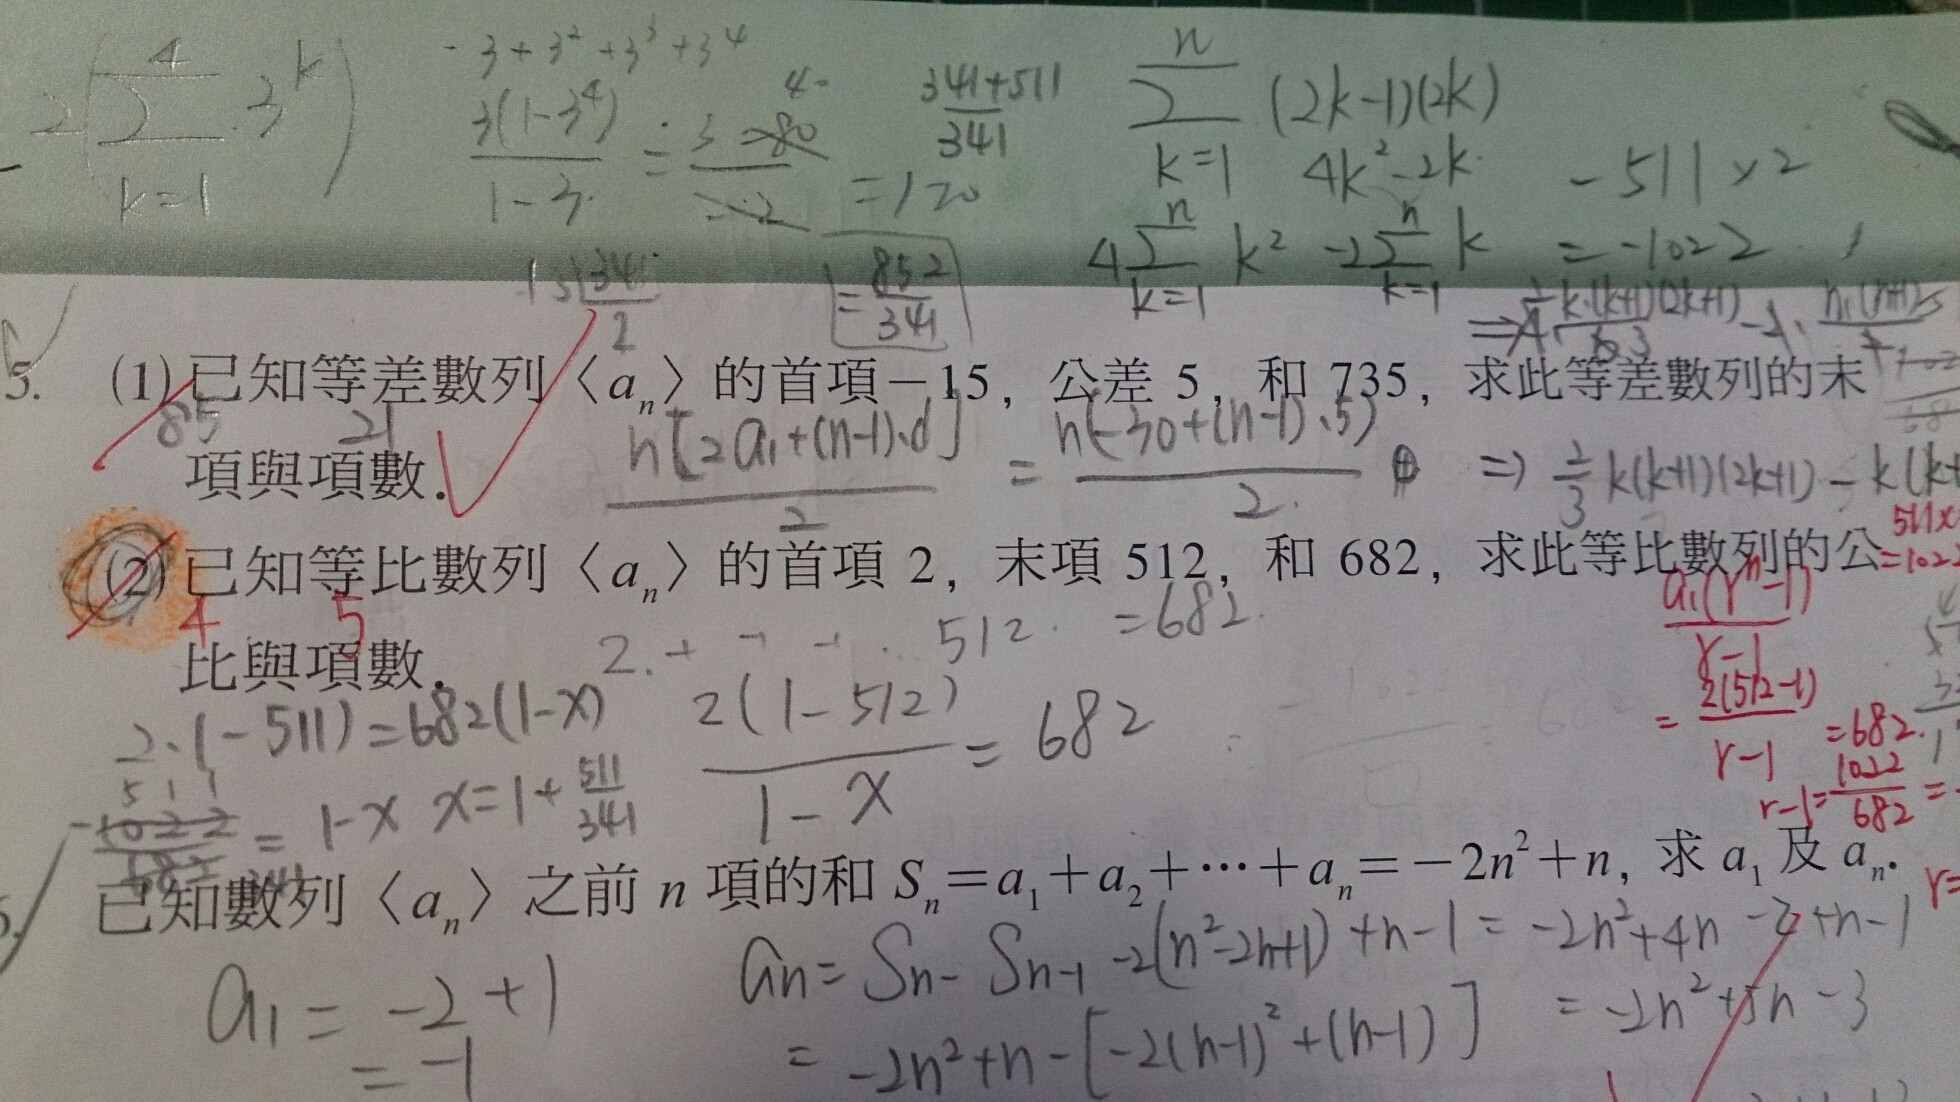 -2(Σ_{k=1}^{4} 3^k)
3+3²+3³+3⁴
3(1-3⁴)/(1-3) = 3 -80/-2 = 120
341+511/341
= 852/341
Σ_{k=1}^{n} (2k-1)(2k)
4k²-2k
4Σ_{k=1}^{n} k² -2Σ_{k=1}^{n} k
-511×2
=-1022
5. (1) 已知等差數列〈aₙ〉的首項-15，公差 5，和 735，求此等差數列的末
項與項數．
85 21
n[2a₁+(n-1)·d]/2 = n(-30+(n-1)·5)/2
⇒ 2/3 k(k+1)(2k+1) - k(k+
(2) 已知等比數列〈aₙ〉的首項 2，末項 512，和 682，求此等比數列的公
比與項數．
4 5
2.+ 512 =682
2·(-511)=682(1-x)
2(1-512)/(1-x) = 682
= 1-x x=1+511/341
a₁(rⁿ-1)/(r-1)
= 2(512-1)/(r-1) =682
r-1=1022/682=
r=
已知數列〈aₙ〉之前 n 項的和 Sₙ=a₁+a₂+⋯+aₙ=-2n²+n，求 a₁ 及 aₙ．
a₁ = -2+1
= -1
aₙ= Sₙ- Sₙ₋₁
= -2n²+n-[-2(n-1)²+(n-1)]
-2(n²-2n+1)+n-1 = -2n²+4n-2+n-1
= -2n²+5n-3